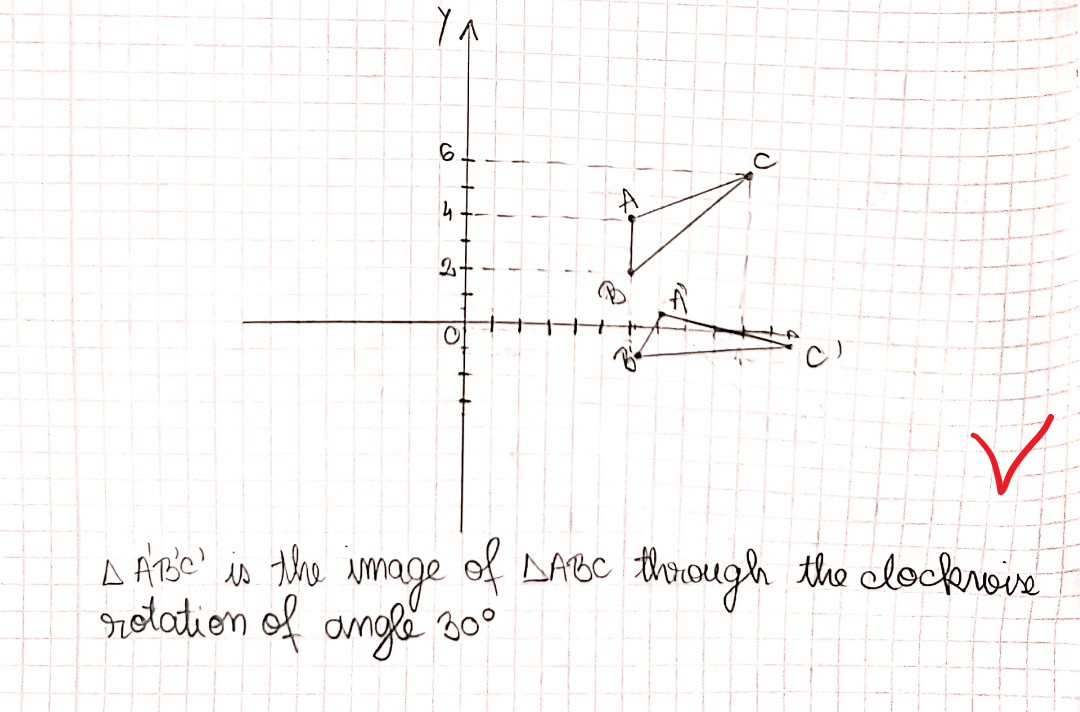 Y
6
C
A
4
2
B
A'
0
B'
C'
Δ A'B'C' is the image of ΔABC through the clockwise
rotation of angle 30°